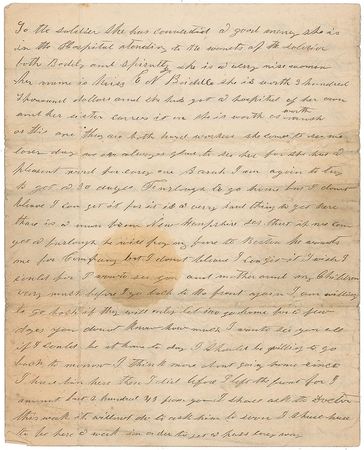 To the soldier She has converted a good meney she is
in the Hospital atending to the wounts of the soldier
both Bodily and Spirently she is a very nise women
Her name is Miss E N Biddle she is worth 3 hundred
Thousand dollars and its has got a hospital of her own
and her sister carres it on she is worth as mutch
worth
as this one They are both hard workers she comes to see me
every day we are always glad to see her for she has a
plesent word for every one Basard I am again to try
to get a 30 days Firloughs to go home but I dont
believe I can get it for it is a very hard thing to get here
there is a man from New Hampshire ses that if we can
get a furlough he will pay my fare to Boston He wants
me for Company but I dont believe I can get it I wish I
could for I want to see you and mother and my Children
very much before I go back to the front again I am willing
to go back if they will only let me go home for a few
days you dont know how much I want to see you all
if I could be at home to day I should be willing to go
back to morrow I think more about going home since
I have bin here than I did before I left the front for I
ammot but 4 hundred from you I shall ask the Doctor
this week it will not do to ask him to soon I shall have
to be here a week in order to get a pass any way